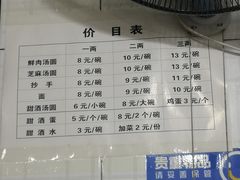 价目表
一两 二两 三两
鲜肉汤圆 8元/碗 10元/碗 13元/碗
芝麻汤圆 8元/碗 10元/碗 13元/碗
抄手 8元/碗 10元/碗 13元/碗
面 8元/碗 9元/碗 10元/碗
甜酒汤圆 6元/小碗 8元/大碗 鸡蛋3元/个
甜酒蛋 5元/个/碗 8元/2个/碗
甜酒水 3元/碗 加菜2元/份
贵重物品
请妥善保管